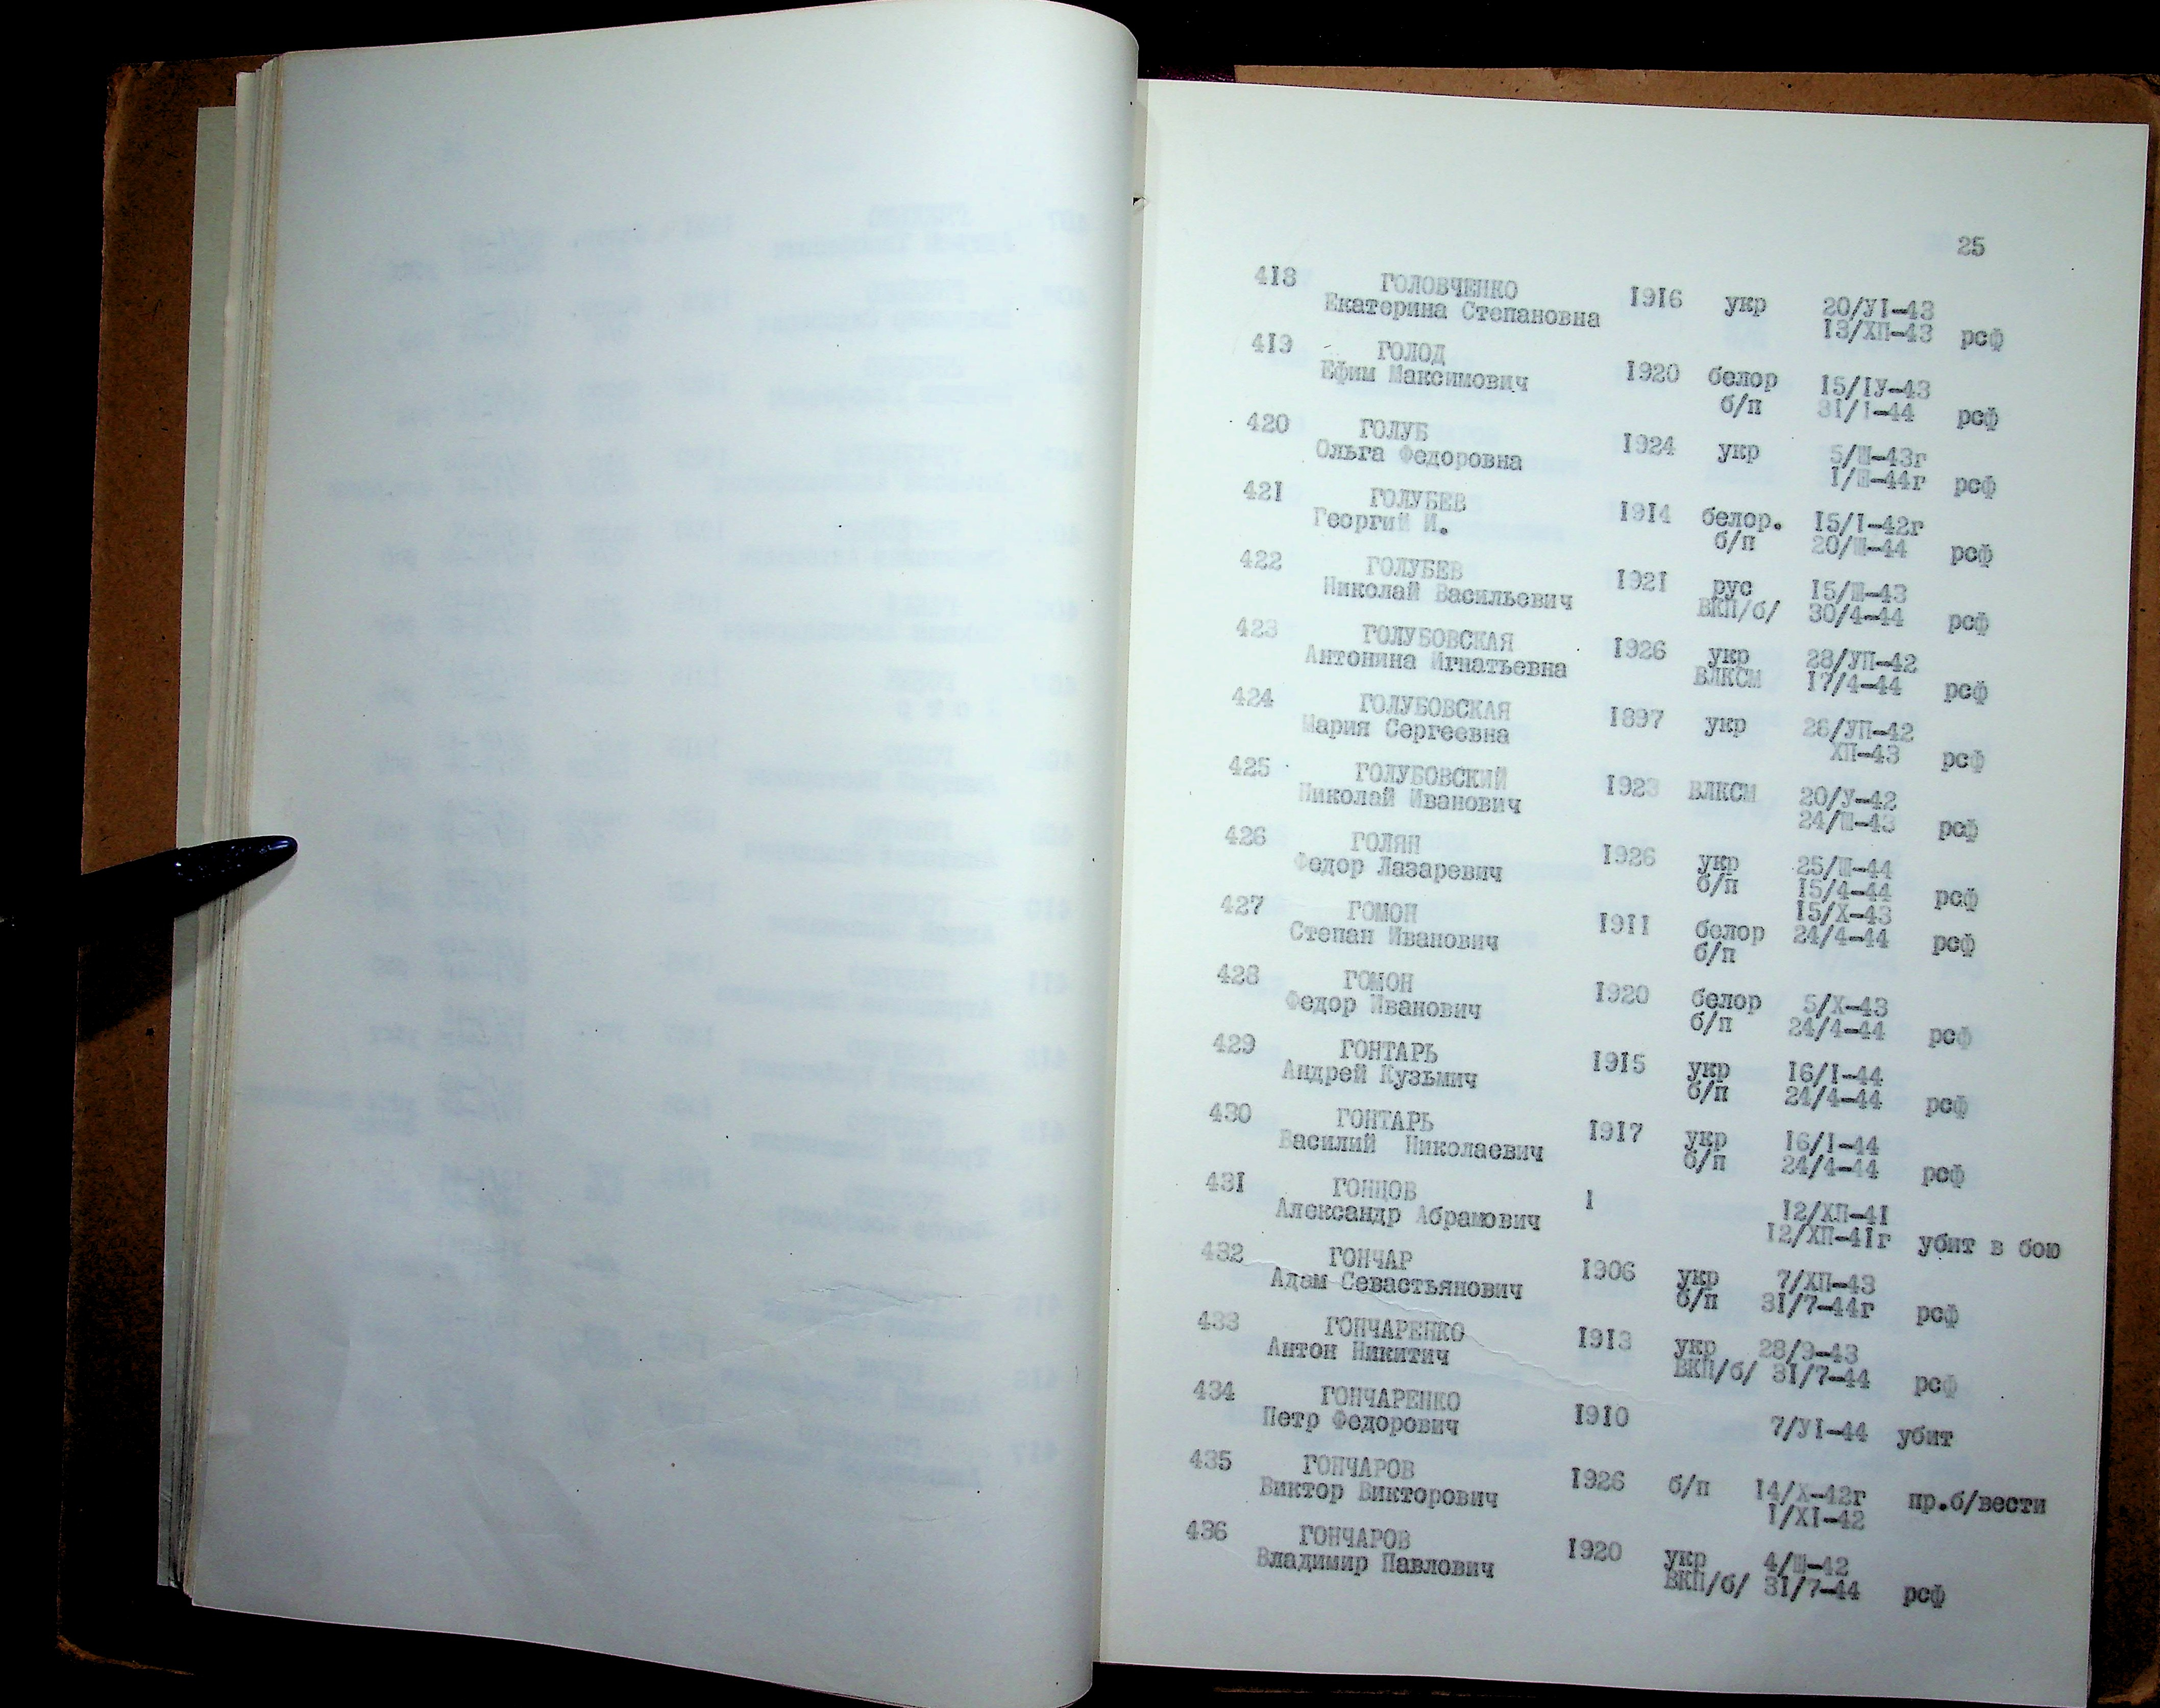 25
418 ГОЛОВЧЕНКО 1916 укр 20/УІ-43
Екатерина Степановна 13/ХП-43 рсф
419 ГОЛОД 1920 белор 15/ІУ-43
Ефим Максимович б/п 31/І-44 рсф
420 ГОЛУБ 1924 укр 5/Ш-43г
Ольга Федоровна 1/Ш-44г рсф
421 ГОЛУБЕВ 1914 белор. 15/І-42г
Георгий И. б/п 20/Ш-44 рсф
422 ГОЛУБЕВ 1921 рус 15/Ш-43
Николай Васильевич ВКП/б/ 30/4-44 рсф
423 ГОЛУБОВСКАЯ 1926 укр 28/УП-42
Антонина Игнатьевна ВЛКСМ 17/4-44 рсф
424 ГОЛУБОВСКАЯ 1897 укр 26/УП-42
Мария Сергеевна ХП-43 рсф
425 ГОЛУБОВСКИЙ 1923 ВЛКСМ 20/У-42
Николай Иванович 24/Ш-43 рсф
426 ГОЛЯН 1926 укр 25/Ш-44
Федор Лазаревич б/п 15/4-44 рсф
427 ГОМОН 1911 белор 15/Х-43
Степан Иванович б/п 24/4-44 рсф
428 ГОМОН 1920 белор 5/Х-43
Федор Иванович б/п 24/4-44 рсф
429 ГОНТАРЬ 1915 укр 16/І-44
Андрей Кузьмич б/п 24/4-44 рсф
430 ГОНТАРЬ 1917 укр 16/І-44
Василий Николаевич б/п 24/4-44 рсф
431 ГОНЦОВ 1 12/ХП-41
Александр Абрамович 12/ХП-41г убит в бою
432 ГОНЧАР 1906 укр 7/ХП-43
Адам Севастьянович б/п 31/7-44г рсф
433 ГОНЧАРЕНКО 1913 укр 28/9-43
Антон Никитич ВКП/б/ 31/7-44 рсф
434 ГОНЧАРЕНКО 1910
Петр Федорович 7/УІ-44 убит
435 ГОНЧАРОВ 1926 б/п 14/Х-42г пр.б/вести
Виктор Викторович 1/ХІ-42
436 ГОНЧАРОВ 1920 укр 4/Ш-42
Владимир Павлович ВКП/б/ 31/7-44 рсф